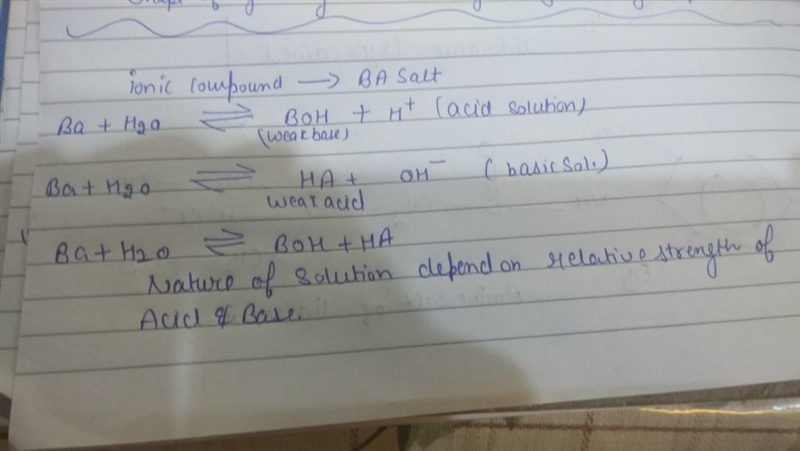 ionic compound → BA Salt
Ba + H2O ⇌ BOH + H⁺ (acid solution)
(weak base)
Ba + H2O ⇌ HA + OH⁻ (basic Sol.)
weak acid
Ba + H2O ⇌ BOH + HA
Nature of Solution depend on relative strength of
Acid & Base.